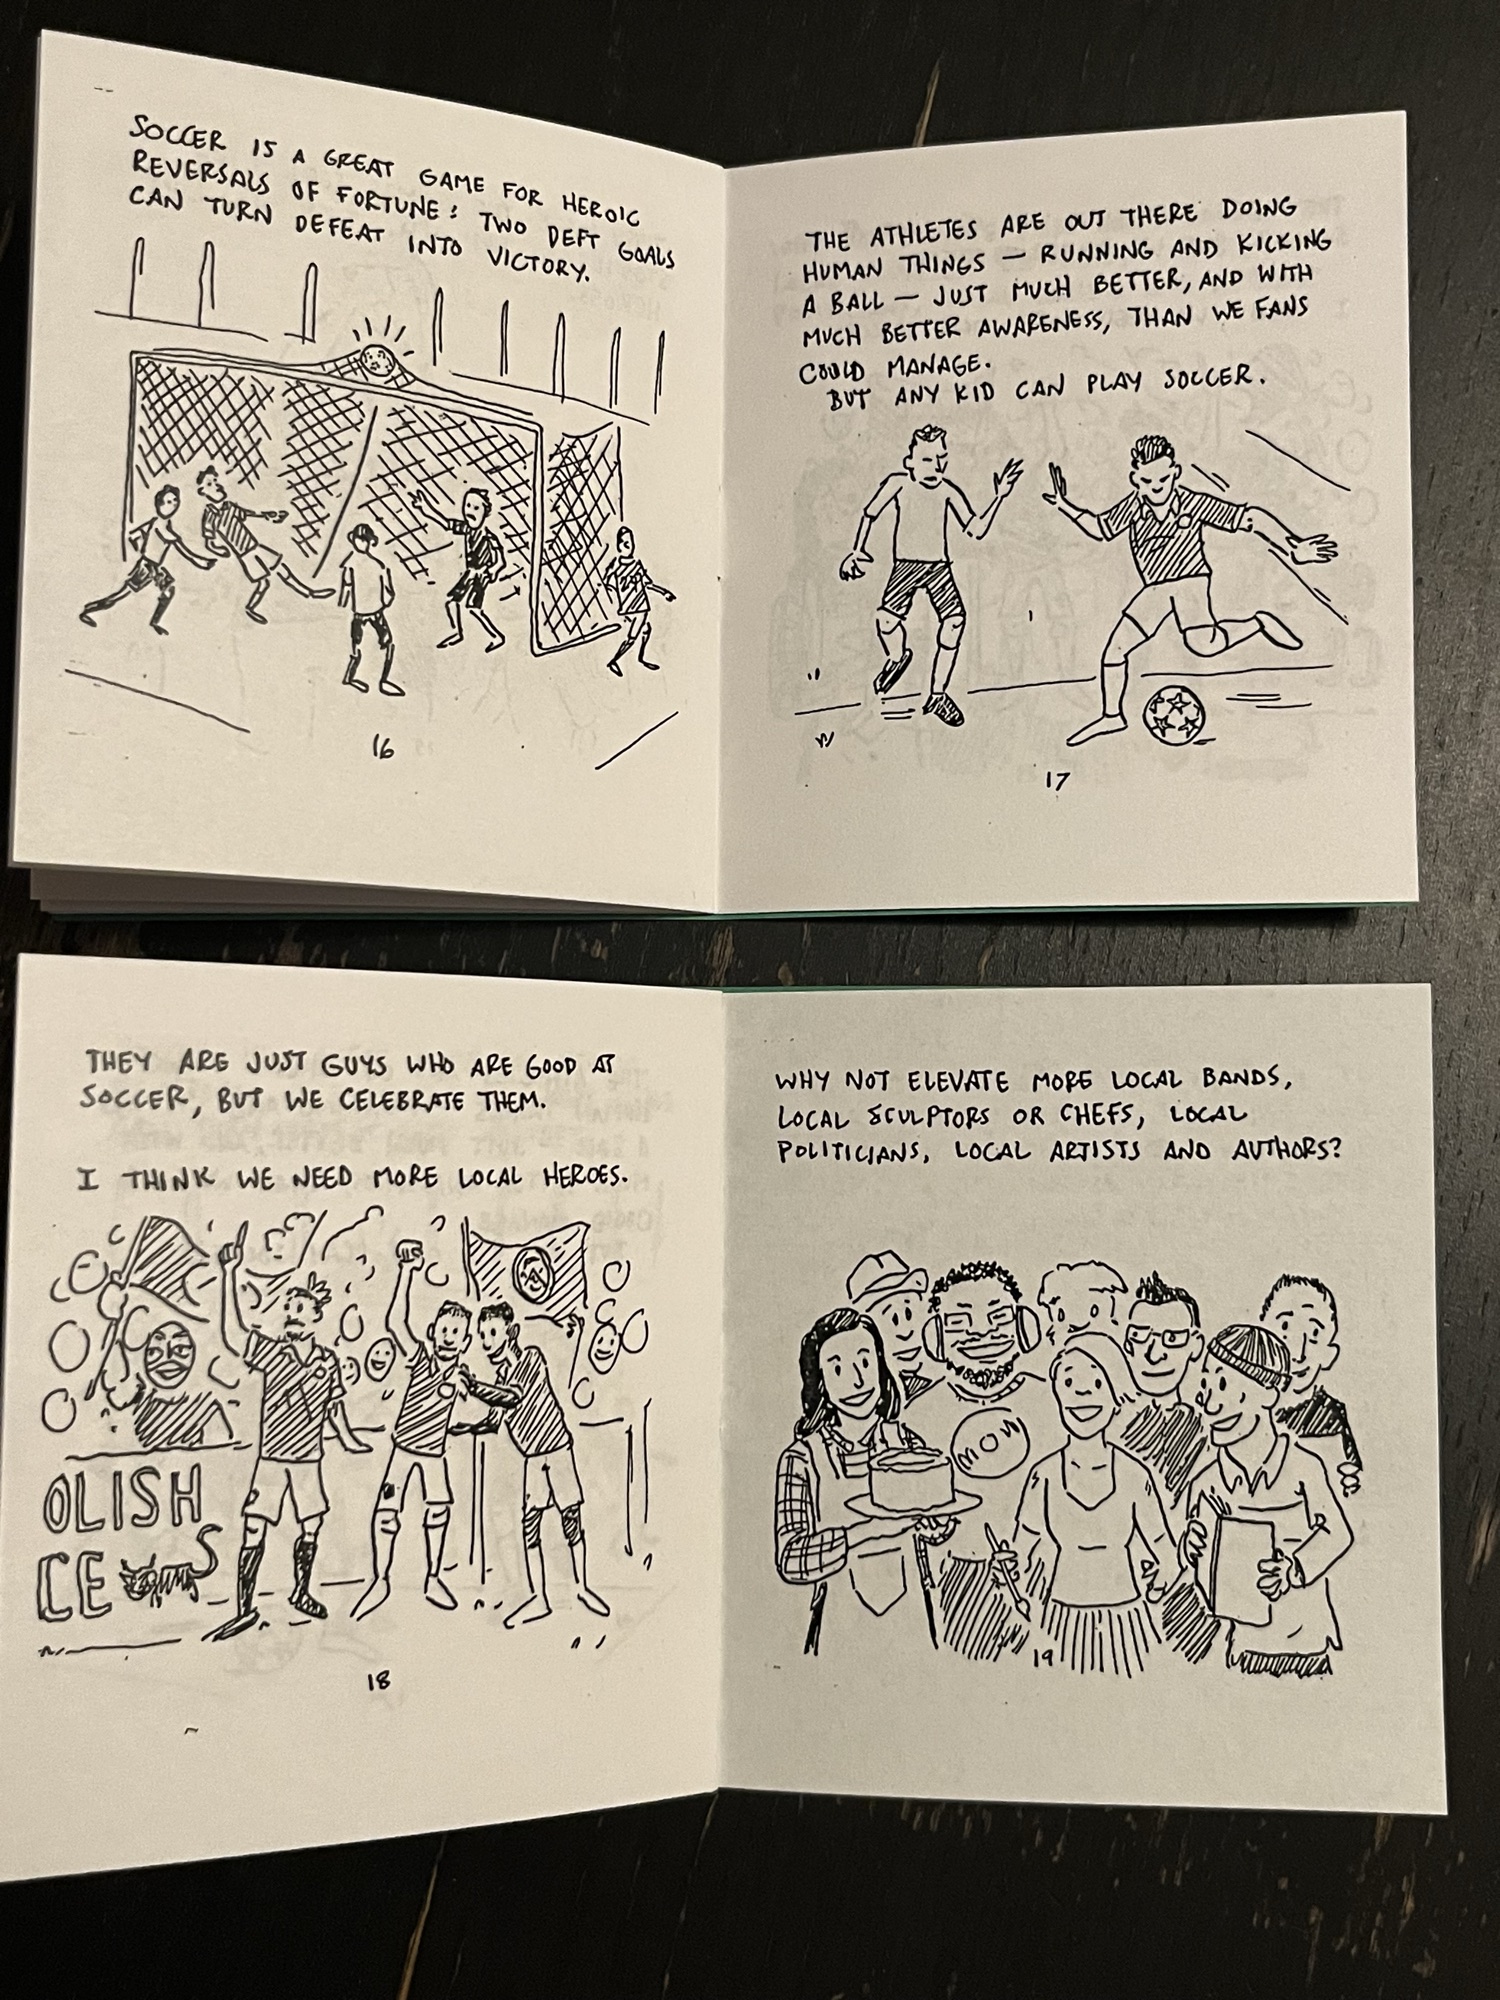 SOCCER IS A GREAT GAME FOR HEROIC
REVERSALS OF FORTUNE: TWO DEFT GOALS
CAN TURN DEFEAT INTO VICTORY.
16
THE ATHLETES ARE OUT THERE DOING
HUMAN THINGS — RUNNING AND KICKING
A BALL — JUST MUCH BETTER, AND WITH
MUCH BETTER AWARENESS, THAN WE FANS
COULD MANAGE.
BUT ANY KID CAN PLAY SOCCER.
17
THEY ARE JUST GUYS WHO ARE GOOD AT
SOCCER, BUT WE CELEBRATE THEM.
I THINK WE NEED MORE LOCAL HEROES.
OLISH
CE
S
18
WHY NOT ELEVATE MORE LOCAL BANDS,
LOCAL SCULPTORS OR CHEFS, LOCAL
POLITICIANS, LOCAL ARTISTS AND AUTHORS?
19